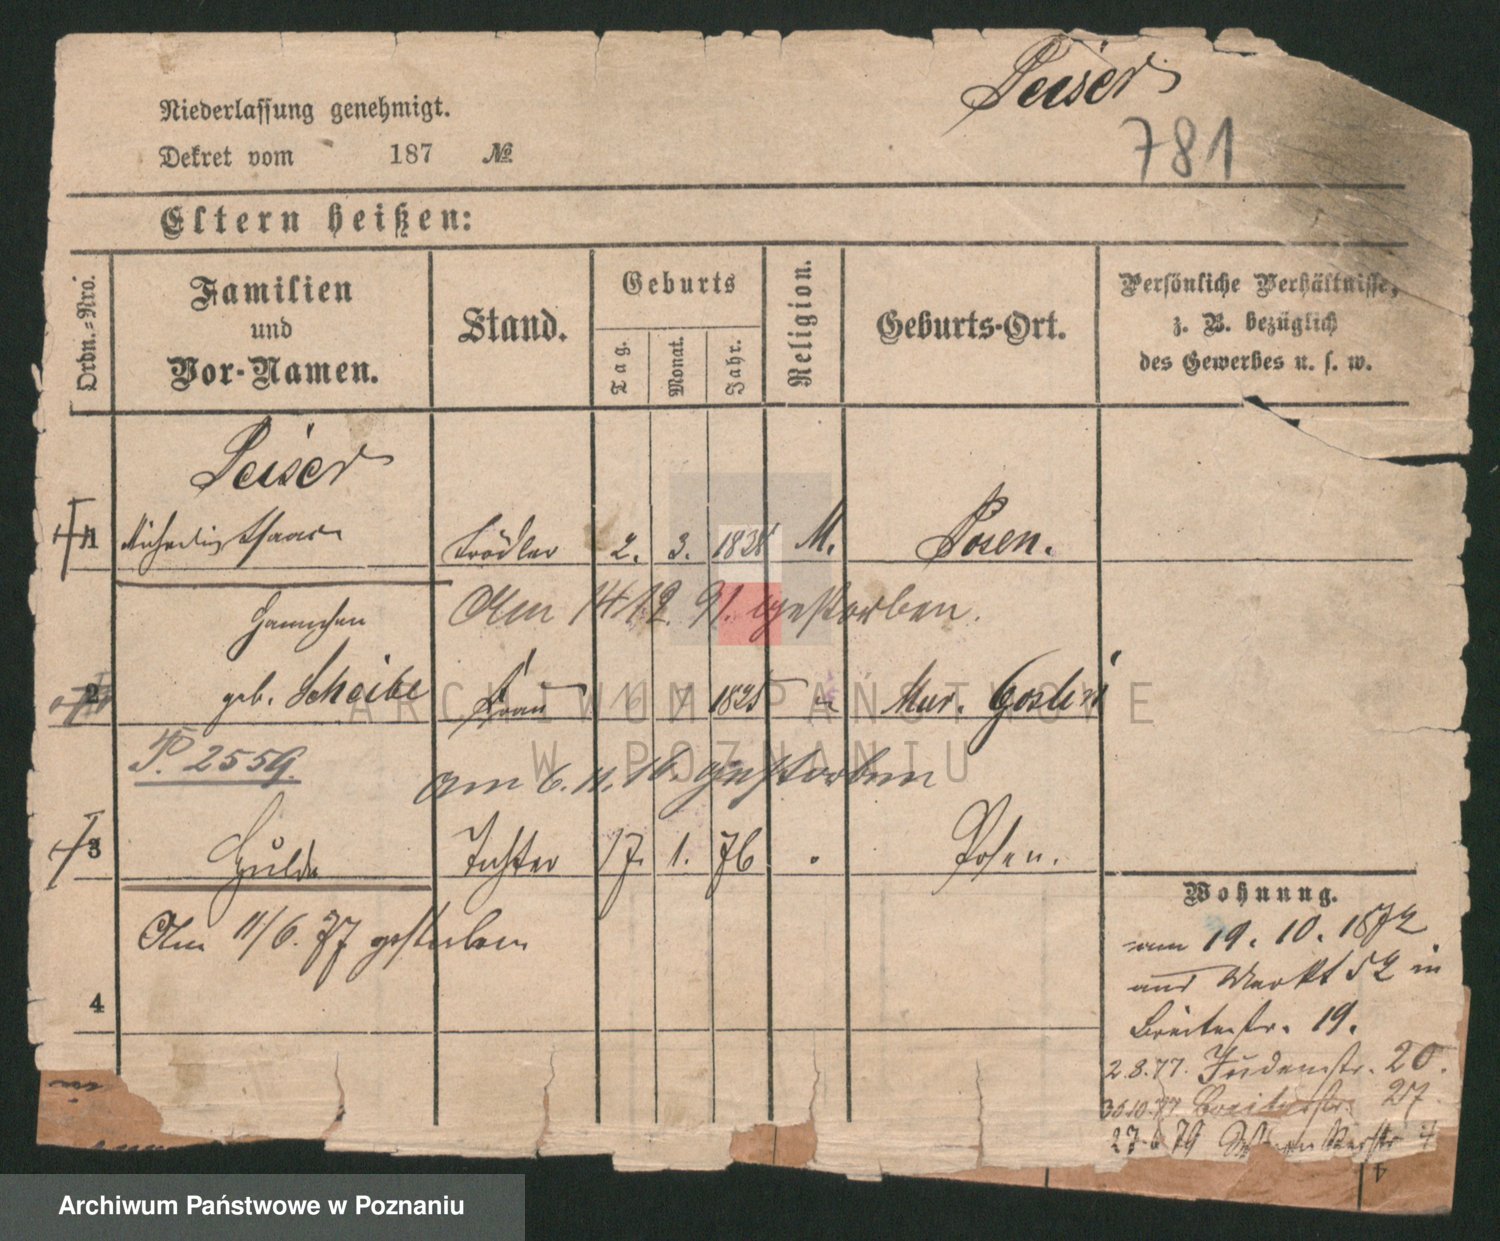 Peiser
Niederlassung genehmigt.
781
Dekret vom 187 №
Eltern heißen:
Ordn.=Nro.
Familien
und
Vor-Namen.
Stand.
Geburts
Tag.
Monat.
Jahr.
Religion.
Geburts-Ort.
Persönliche Verhältnisse,
z. B. bezüglich
des Gewerbes u. s. w.
Peiser
1 Isaac Trödler 2. 3. M. Posen.
Am 14 12. 91. gestorben.
Hannchen
2 geb. Scheibe Frau 1825 Mur. Goslin
P. 2559.
am 6. 11. 16. gestorben
3 Hulda Tochter 17. 1. 76 Posen.
Am 11/6. 77 gestorben
4
Wohnung.
am 19. 10. 1872
aus Markt 52 in
Breitestr. 19.
2.8.77. Judenstr. 20.
30.10.77 Breitestr. 27.
27.6.79
ARCHIWUM PAŃSTWOWE
W POZNANIU
Archiwum Państwowe w Poznaniu